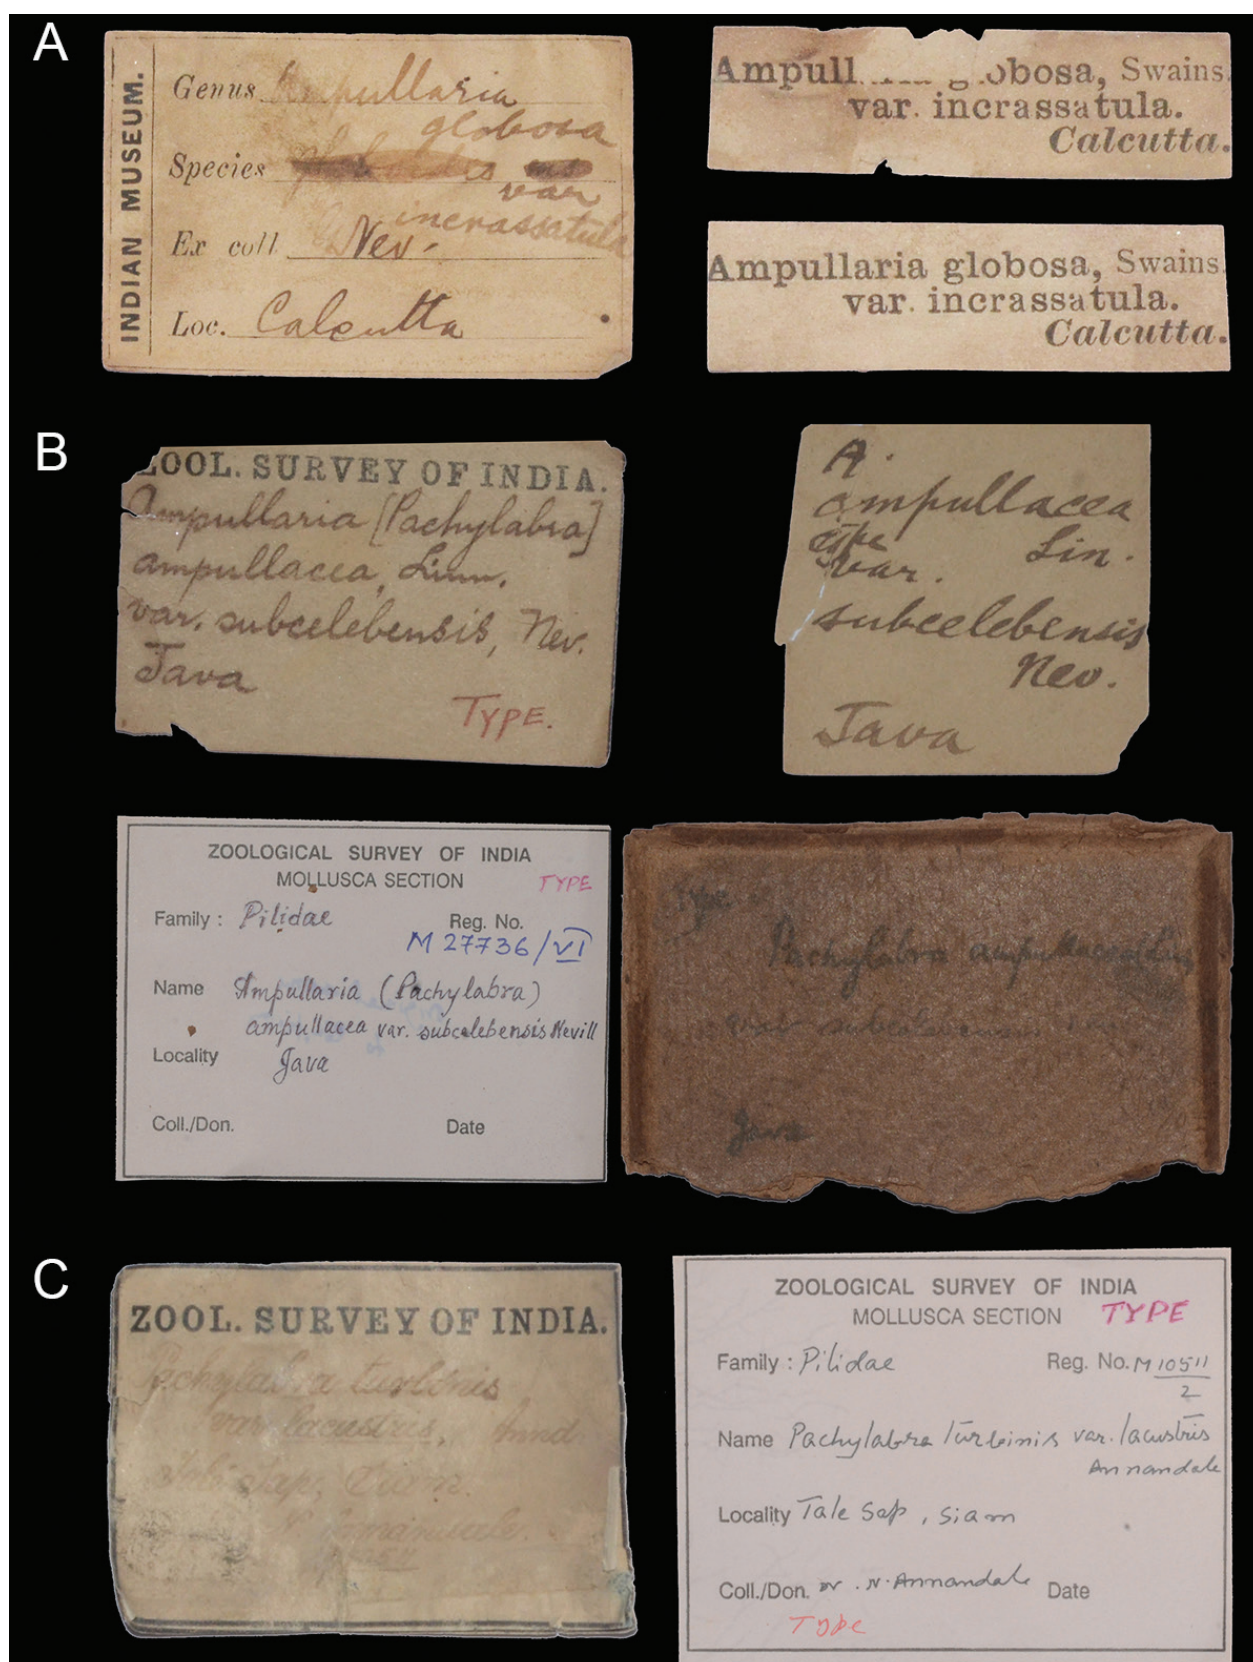 A
INDIAN MUSEUM.
Genus Ampullaria
globosa
Species
var
incrassatula
Ex coll Nev.
Loc. Calcutta
Ampull globosa, Swains.
var. incrassatula.
Calcutta.
Ampullaria globosa, Swains.
var. incrassatula.
Calcutta.
B
ZOOL. SURVEY OF INDIA.
Ampullaria [Pachylabra]
ampullacea, Linn.
var. subcelebensis, Nev.
Java
TYPE.
A.
ampullacea
type Lin.
var.
subcelebensis
Nev.
Java
ZOOLOGICAL SURVEY OF INDIA
MOLLUSCA SECTION TYPE
Family : Pilidae Reg. No.
M 27736/VI
Name Ampullaria (Pachylabra)
ampullacea var. subcelebensis Nevill
Locality Java
Coll./Don. Date
Type
Pachylabra ampullacea (Lin
var. subcelebensis
Java
C
ZOOL. SURVEY OF INDIA.
Pachylabra turbinis
var. lacustris, Annd
Tale Sap, Siam.
Annandale.
ZOOLOGICAL SURVEY OF INDIA
MOLLUSCA SECTION TYPE
Family : Pilidae Reg. No. M 10511
2
Name Pachylabra turbinis var. lacustris
Annandale
Locality Tale Sap, Siam
Coll./Don. Dr. N. Annandale Date
Type